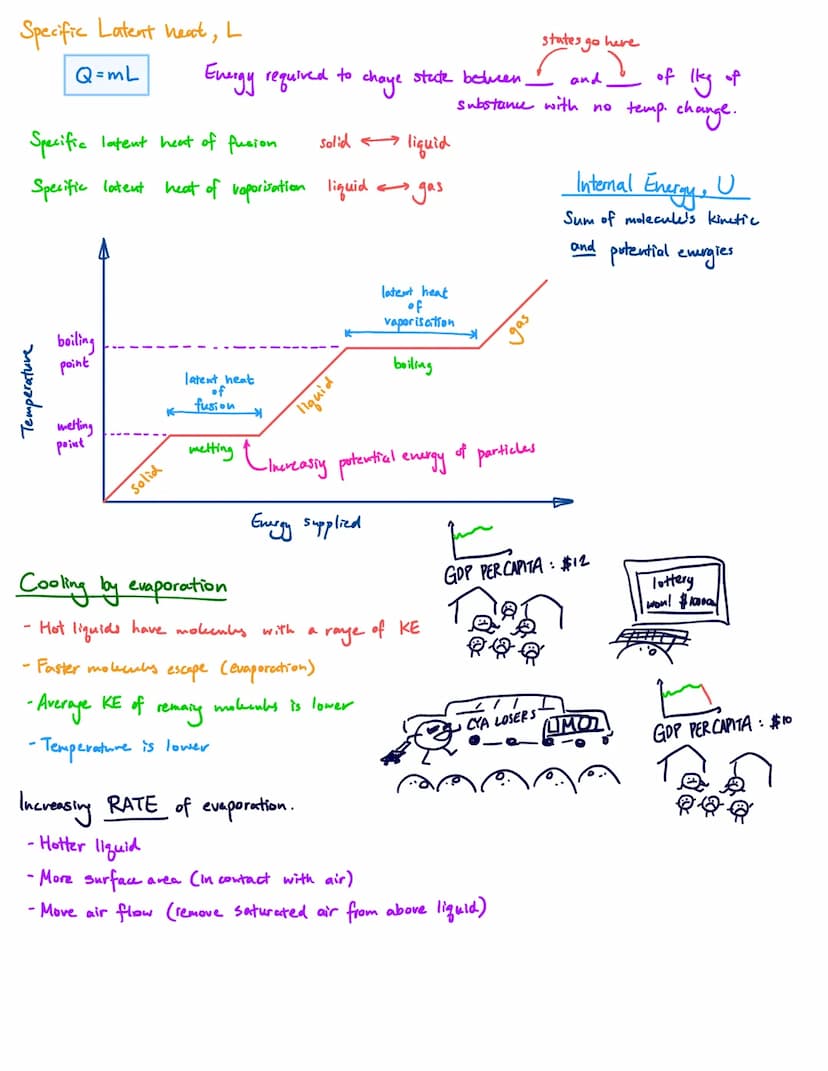 Specific Latent heat, L
states go here
Q = mL
Energy required to change state between ___ and ___ of 1kg of
substance with no temp. change.
Specific latent heat of fusion solid ⟷ liquid
Specific latent heat of vaporisation liquid ⟷ gas
Internal Energy, U
Sum of molecule's kinetic
and potential energies
Temperature
boiling
point
melting
point
latent heat
of
fusion
latent heat
of
vaporisation
solid
melting
liquid
boiling
gas
Increasing potential energy of particles
Energy supplied
Cooling by evaporation
- Hot liquids have molecules with a range of KE
- Faster molecules escape (evaporation)
- Average KE of remaing molecules is lower
- Temperature is lower
GDP PER CAPITA : $12
lottery
won!
CYA LOSERS
LIMO
GDP PER CAPITA : $10
Increasing RATE of evaporation.
- Hotter liquid
- More surface area (in contact with air)
- Move air flow (remove saturated air from above liquid)